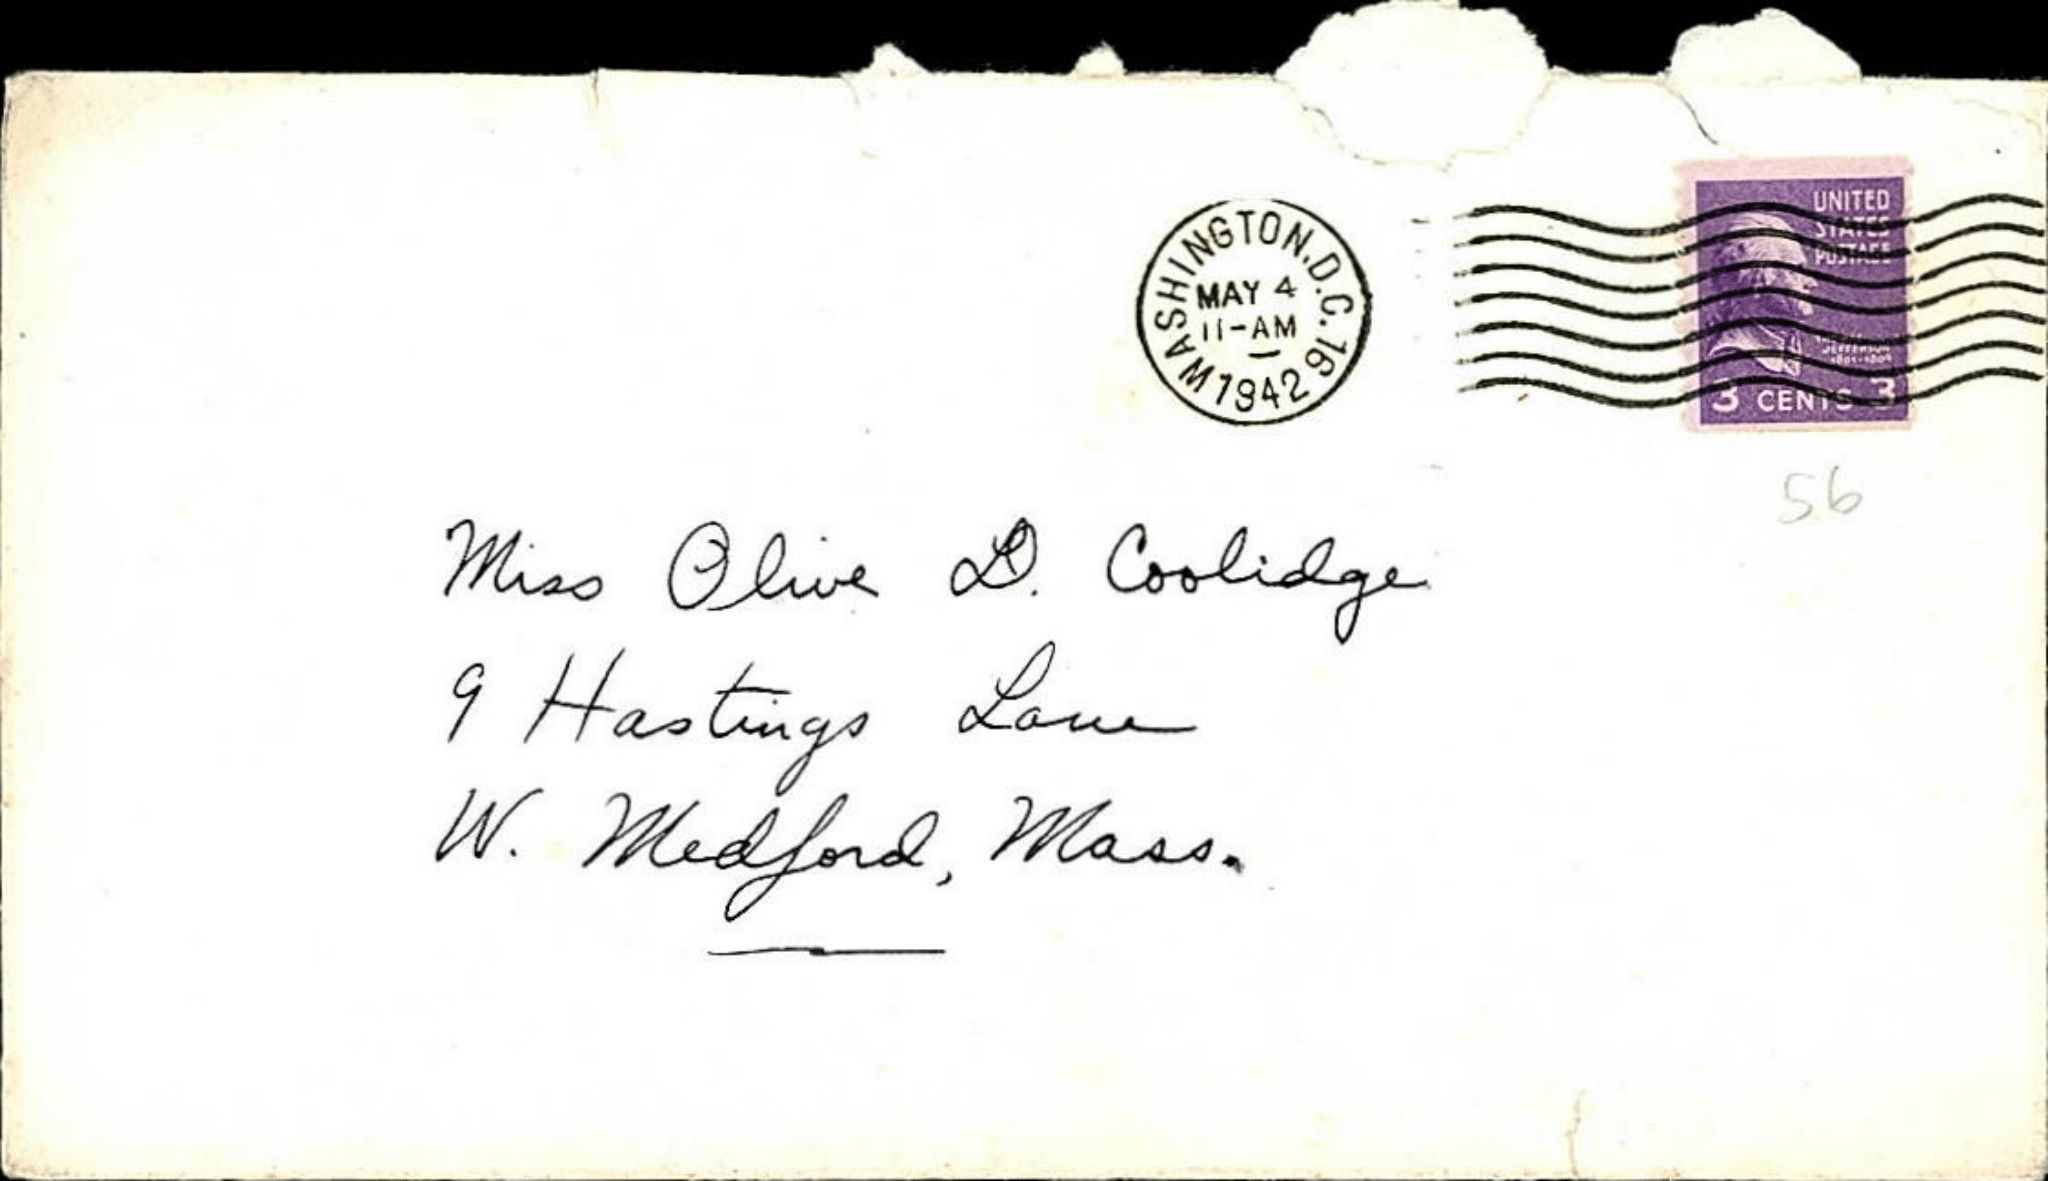 WASHINGTON, D.C. 16
MAY 4
11-AM
1942
UNITED
STATES
POSTAGE
JEFFERSON
1801-1809
3 CENTS 3
56
Miss Olive D. Coolidge
9 Hastings Lane
W. Medford, Mass.